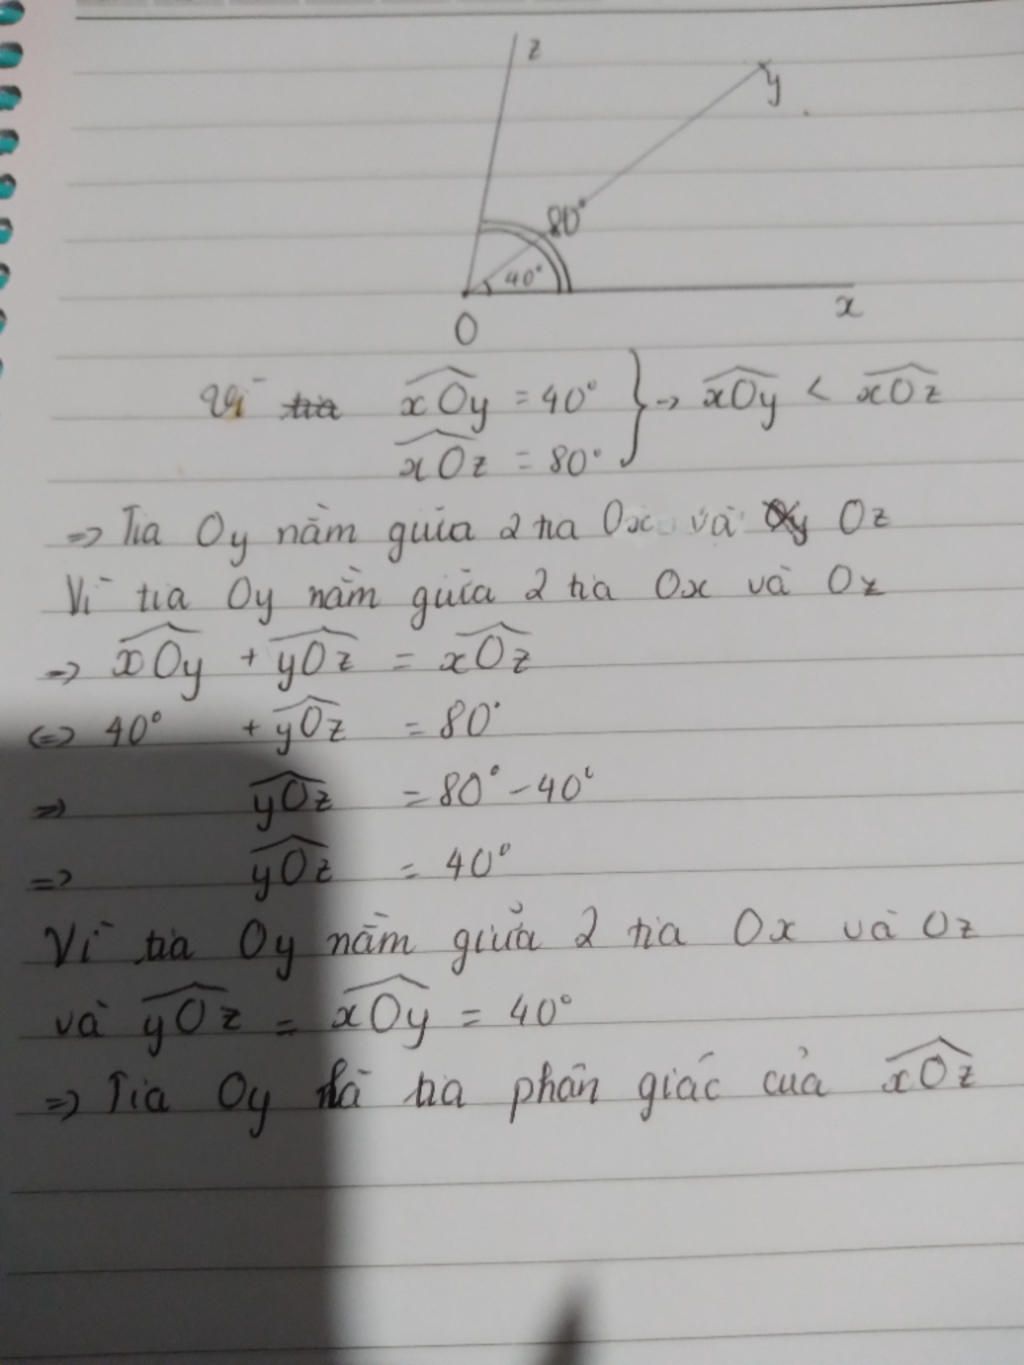 z
y
80°
40°
x
O
Vì xOy = 40° } → xOy < xOz
xOz = 80°
=> Tia Oy nằm giữa 2 tia Ox và Oz
Vì tia Oy nằm giữa 2 tia Ox và Oz
=> xOy + yOz = xOz
<=> 40° + yOz = 80°
=> yOz = 80° - 40°
=> yOz = 40°
Vì tia Oy nằm giữa 2 tia Ox và Oz
và yOz = xOy = 40°
=> Tia Oy là tia phân giác của xOz